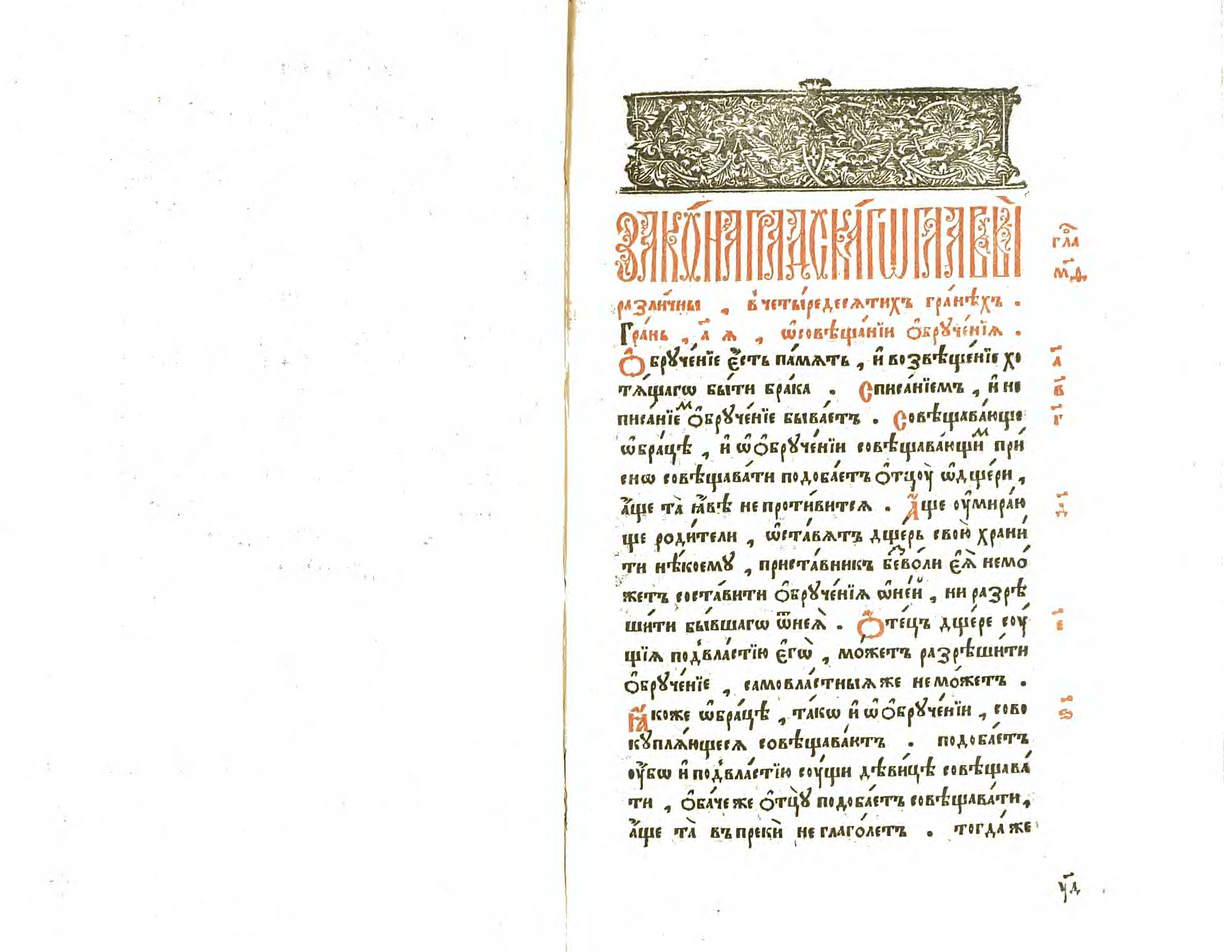 ЗАКО́НА ГРАДСКА́ГѠ ГЛАВЫ̀
гла̑
м҃д.
разли́чны , в̾четы́редесѧтихъ гра́нѣхъ .
Гра́нь , а҃ ѧ , ѡ҆совѣща́нїи ѻ҆брꙋче́нїѧ .
Ѻ҆брꙋче́нїе є҆́сть па́мѧть , и҆ возвѣще́нїе хо
а҃
тѧ́щагѡ бы́ти бра́ка . Списа́нїемъ , и҆ не
в҃
писа́нїеⷨ ѻ҆брꙋче́нїе быва́етъ . Совѣщава́юще
г҃
ѡ҆бра́цѣ , и҆ ѡ҆ѻ҆брꙋче́нїи совѣщава́ющиⷨ при́
снѡ совѣщава́ти подоба́етъ ѻ҆тцоу̀ ѡ҆дще́ри ,
а҆́ще та̀ ꙗ҆́вѣ не проти́витсѧ . А҆́ще оу҆мира́ю
д҃
ще роди́тели , ѡ҆ста́вѧтъ дще́рь свою̀ храни́
ти нѣ́коемꙋ , приста́вникъ беⷥво́ли є҆ѧ̀ немо́
жетъ соста́вити ѻ҆брꙋче́нїѧ ѡ҆не́й , ни разрѣ
ши́ти бы́вшагѡ ѿнеѧ̀ . Ѻ҆те́цъ дще́ре соу́
е҃
щїѧ под̾вла́стїю є҆гѡ̀ , мо́жетъ разрѣши́ти
ѻ҆брꙋче́нїе , самовла́стныѧ же не мо́жетъ .
Ꙗ҆́коже ѡ҆бра́цѣ , та́кѡ и҆ ѡ҆ѻ҆брꙋче́нїи , сово
ѕ҃
кꙋплѧ́ющесѧ совѣщава́ютъ . подоба́етъ
оу҆́бѡ и҆ под̾вла́стїю соу́щи дѣви́цѣ совѣщава́
ти , ѻ҆ба́че же ѻ҆тцꙋ̀ подоба́етъ совѣщава́ти ,
а҆́ще та̀ въпрекѝ не глаго́летъ . тогда́ же
у҃д